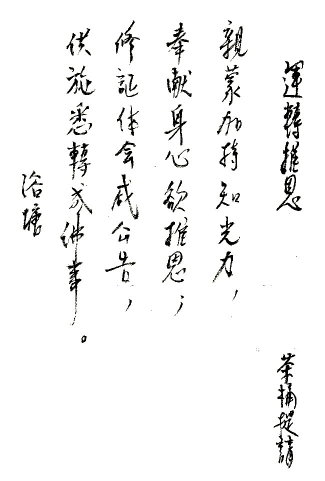 運轉推恩
茶桶提請
親蒙加持知光力，
奉獻身心欲推恩；
修証体会咸公告，
供施悉轉成佛事。
浴塘